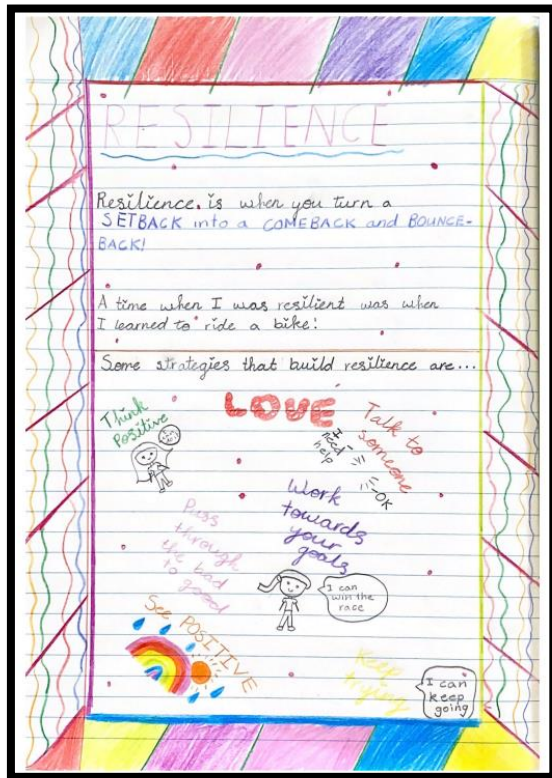 RESILIENCE
Resilience is when you turn a
SETBACK into a COMEBACK and BOUNCE-
BACK!
A time when I was resilient was when
I learned to ride a bike!
Some strategies that build resilience are...
LOVE
Think
Positive
Talk to
someone
I
need
help
OK
Work
towards
your
goals
Pass
through
the bad
to good
I can
win the
race
See POSITIVE
Keep
trying
I can
keep
going